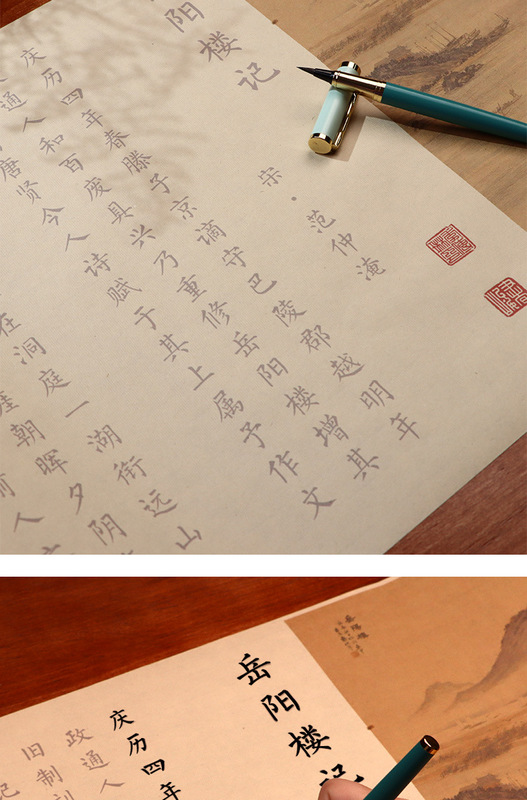 阳楼记
宋·范仲淹
庆历四年春滕子京谪守巴陵郡越明年
通人和百废具兴乃重修岳阳楼增其
唐贤今人诗赋于其上属予作文
在洞庭一湖衔远山
朝晖夕阴
人
岳阳楼记
庆历四年
政通人
旧制